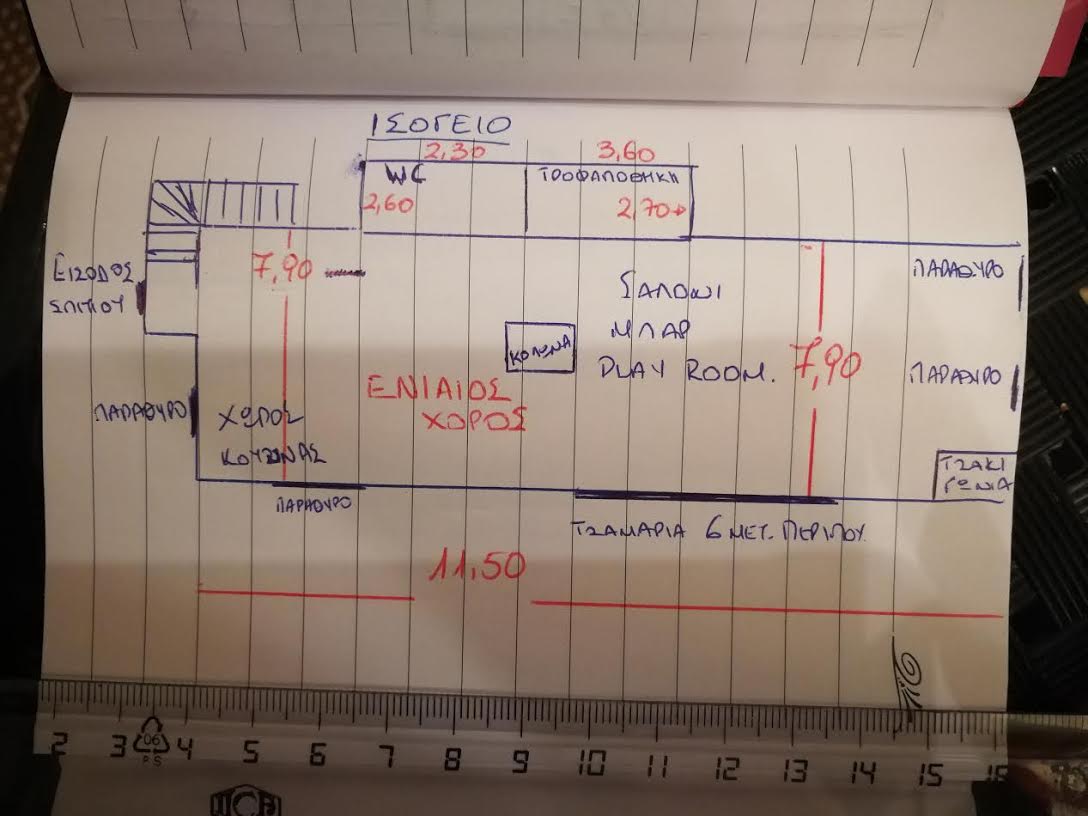 ΙΣΟΓΕΙΟ
2,30
3,60
WC
ΤΡΟΦΑΠΟΘΗΚΗ
2,60
2,70
ΕΙΣΟΔΟΣ
ΣΠΙΤΙΟΥ
7,90
ΠΑΡΑΘΥΡΟ
ΣΑΛΟΝΙ
ΜΠΑΡ
PLAY ROOM.
7,90
ΚΟΛΩΝΑ
ΠΑΡΑΘΥΡΟ
ΕΝΙΑΙΟΣ
ΧΟΡΟΣ
ΠΑΡΑΘΥΡΟ
ΧΩΡΟΣ
ΚΟΥΖΙΝΑΣ
ΤΖΑΚΙ
ΓΩΝΙΑ
ΠΑΡΑΘΥΡΟ
ΤΖΑΜΑΡΙΑ 6 ΜΕΤ. ΠΕΡΙΠΟΥ.
11,50
2 3 4 5 6 7 8 9 10 11 12 13 14 15 16
06
PS